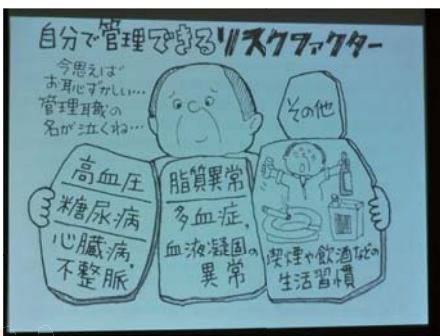 自分で管理できるリスクファクター
今思えば
お恥ずかしい…
管理職の
名が泣くね…
その他
高血圧
糖尿病
心臓病,
不整脈
脂質異常
多血症,
血液凝固の
異常
喫煙や飲酒などの
生活習慣